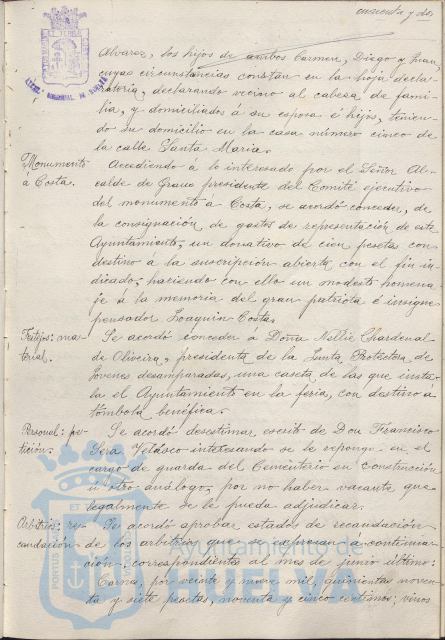 cincuenta y dos
Alvarez, los hijos de ambos Carmen, Diego y Juan,
cuyas circunstancias constan en la hoja decla-
ratoria, declarando vecino al cabeza de fami-
lia, y domiciliados á su esposa é hijos, tenien-
do su domicilio en la casa número cinco de
la calle Santa Maria.
Monumento
á Costa.
Accediendo á lo interesado por el Señor Al-
calde de Graus presidente del Comité ejecutivo
del monumento á Costa, se acordó conceder, de
la consignación de gastos de representación de este
Ayuntamiento, un donativo de cien pesetas con
destino á la suscripción abierta con el fin in-
dicado, haciendo con ello un modesto homena-
je á la memoria del gran patriota é insigne
pensador Joaquin Costa.
Festejos: ma-
terial.
Se acordó conceder á Doña Nellie Chardenal
de Oliveira, presidenta de la Junta Protectora de
Jovenes desamparadas, una caseta de las que insta-
la el Ayuntamiento en la feria, con destino a
tómbola benéfica.
Personal: pe-
tición.
Se acordó desestimar escrito de Don Francisco
Vera Velasco interesando se le reponga en el
cargo de guarda del Cementerio en Construcción
ú otro análogo, por no haber vacante que
legalmente se le pueda adjudicar.
Arbitrios: re-
caudación.
Se acordó aprobar estados de recaudación
de los arbitrios que se expresan á continua-
cion, correspondientes al mes de junio último:
Carnes, por veinte y nueve mil, quinientas noven-
ta y siete pesetas, noventa y cinco centimos; vinos
Ayuntamiento de
HUELVA